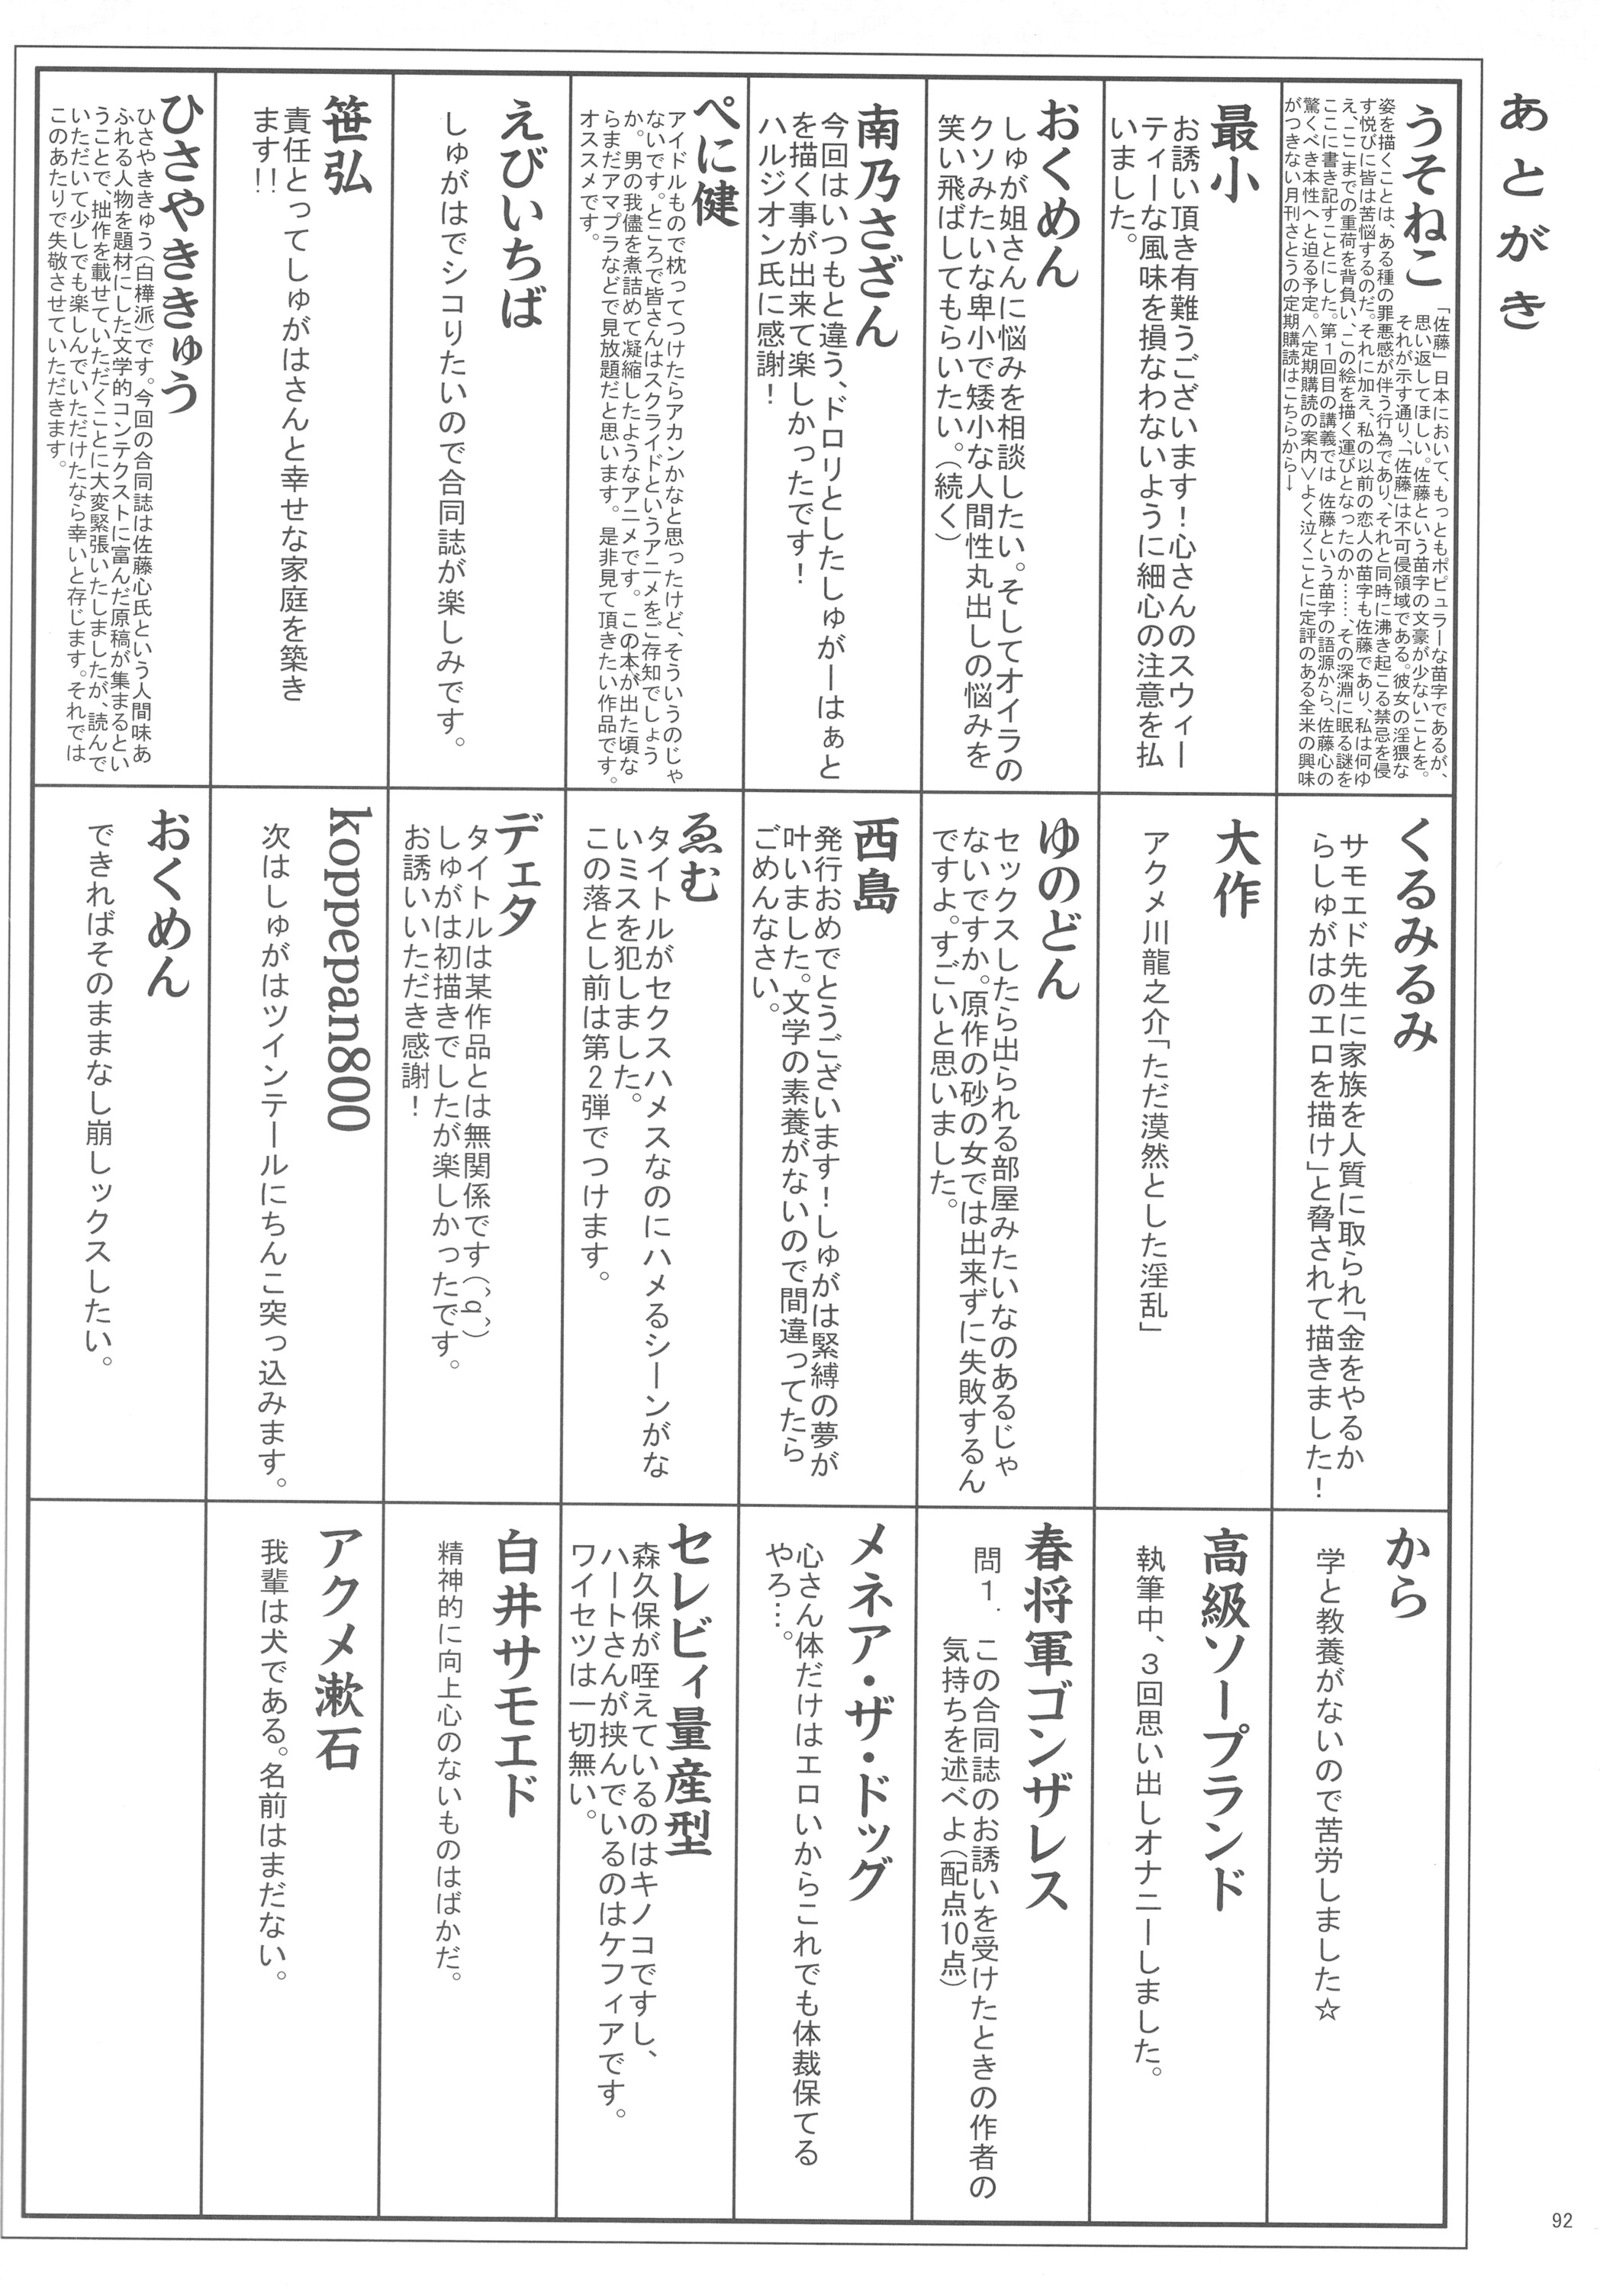 あとがき
うそねこ
「佐藤」日本において、もっともポピュラーな苗字であるが、
思い返してほしい。佐藤という苗字の文豪が少ないことを。
それが示す通り、「佐藤」は不可侵領域である。彼女の淫猥な
姿を描くことは、ある種の罪悪感が伴う行為であり、それと同時に沸き起こる禁忌を侵
す悦びに皆は苦悩するのだ。それに加え、私の以前の恋人の苗字も佐藤であり、私は何ゆ
え、ここまでの重荷を背負い、この絵を描く運びとなったのか……、その深淵に眠る謎を
ここに書き記すことにした。第1回目の講義では 佐藤という苗字の語源から、佐藤心の
驚くべき本性へと迫る予定。<定期購読の案内>よく泣くことに定評のある全米の興味
がつきない月刊さとうの定期購読はこちらから→
最小
お誘い頂き有難うございます!心さんのスウィー
ティーな風味を損なわないように細心の注意を払
いました。
おくめん
しゅが姐さんに悩みを相談したい。そしてオイラの
クソみたいな卑小で矮小な人間性丸出しの悩みを
笑い飛ばしてもらいたい。(続く)
南乃さざん
今回はいつもと違う、ドロリとしたしゅがーはぁと
を描く事が出来て楽しかったです!
ハルジオン氏に感謝!
べに健
アイドルもので枕ってつけたらアカンかなと思ったけど、そういうのじゃ
ないです。ところで皆さんはスクライドというアニメをご存知でしょう
か。男の我儘を煮詰めて凝縮したようなアニメです。この本が出た頃な
らまだアマプラなどで見放題だと思います。是非見て頂きたい作品です。
オススメです。
えびいちば
しゅがはでシコりたいので合同誌が楽しみです。
笹弘
責任とってしゅがはさんと幸せな家庭を築き
ます!!
ひさやききゅう
ひさやききゅう(白樺派)です。今回の合同誌は佐藤心氏という人間味あ
ふれる人物を題材にした文学的コンテクストに富んだ原稿が集まるとい
うことで、拙作を載せていただくことに大変緊張いたしましたが、読んで
いただいて少しでも楽しんでいただけたなら幸いと存じます。それでは
このあたりで失敬させていただきます。
くるみるみ
サモエド先生に家族を人質に取られ「金をやるか
らしゅがはのエロを描け」と脅されて描きました!
大作
アクメ川龍之介「ただ漠然とした淫乱」
ゆのどん
セックスしたら出られる部屋みたいなのあるじゃ
ないですか。原作の砂の女では出来ずに失敗するん
ですよ。すごいと思いました。
西島
発行おめでとうございます!しゅがは緊縛の夢が
叶いました。文学の素養がないので間違ってたら
ごめんなさい。
ゑむ
タイトルがセクスハメスなのにハメるシーンがな
いミスを犯しました。
この落とし前は第2弾でつけます。
デェタ
タイトルは某作品とは無関係です(^q^)
しゅがは初描きでしたが楽しかったです。
お誘いいただき感謝!
koppepan800
次はしゅがはツインテールにちんこ突っ込みます。
おくめん
できればそのままなし崩しックスしたい。
から
学と教養がないので苦労しました☆
高級ソープランド
執筆中、3回思い出しオナニーしました。
春将軍ゴンザレス
問1. この合同誌のお誘いを受けたときの作者の
気持ちを述べよ(配点10点)
メネア・ザ・ドッグ
心さん体だけはエロいからこれでも体裁保てる
やろ…。
セレビィ量産型
森久保が咥えているのはキノコですし、
ハートさんが挟んでいるのはケフィアです。
ワイセツは一切無い。
白井サモエド
精神的に向上心のないものはばかだ。
アクメ漱石
我輩は犬である。名前はまだない。
92